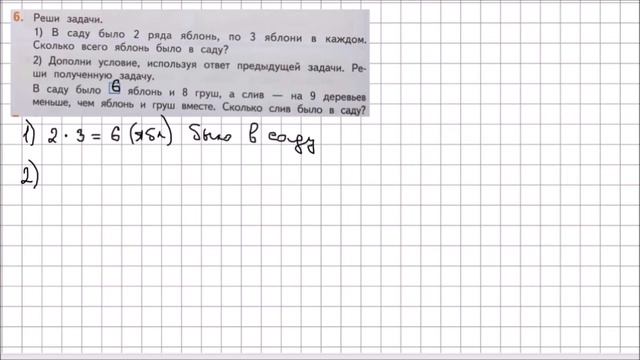 6. Реши задачи.
1) В саду было 2 ряда яблонь, по 3 яблони в каждом.
Сколько всего яблонь было в саду?
2) Дополни условие, используя ответ предыдущей задачи. Ре-
ши полученную задачу.
В саду было 6 яблонь и 8 груш, а слив — на 9 деревьев
меньше, чем яблонь и груш вместе. Сколько слив было в саду?
1) 2 · 3 = 6 (ябл) было в саду
2)